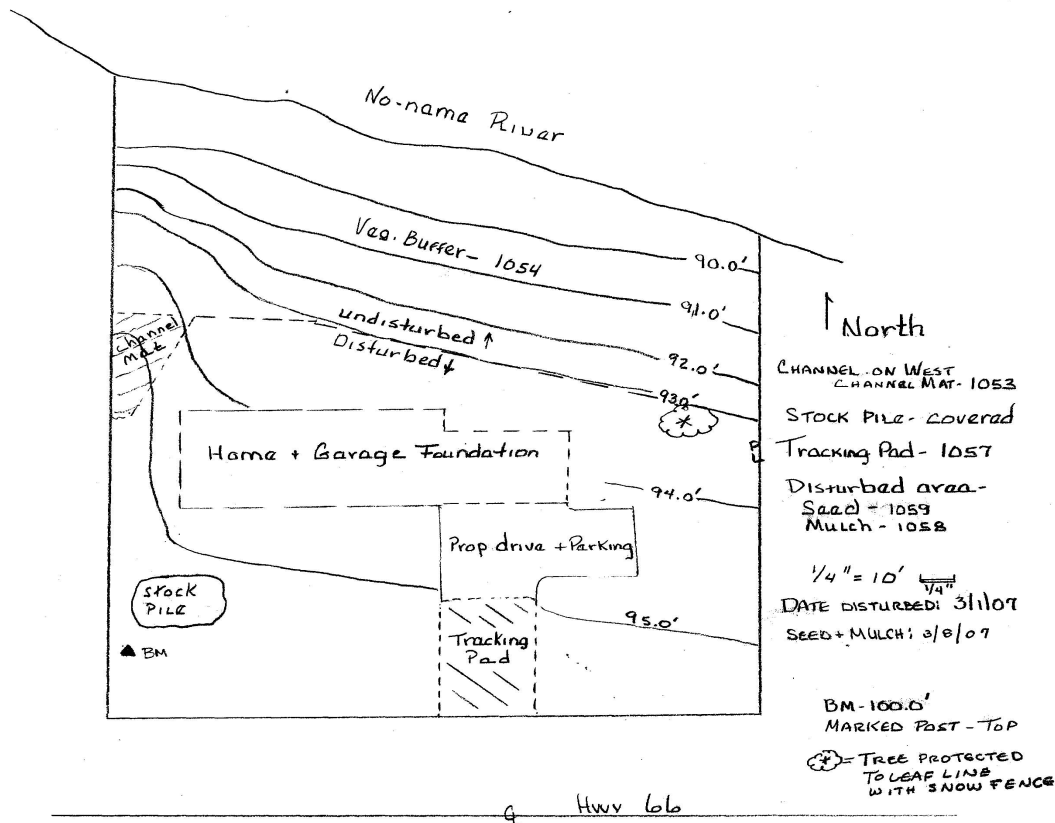 No-nama River
Veg. Buffer- 1054
90.0'
91.0'
92.0'
93.0'
94.0'
95.0'
undisturbed ↑
Disturbed ↓
Channel
Mat
Home + Garage Foundation
Prop. drive + Parking
Stock
Pile
▲ BM
Tracking
Pad
North
Channel on West
Channel Mat- 1053
Stock Pile- covered
PL
Tracking Pad - 1057
Disturbed area-
Seed - 1059
Mulch - 1058
1/4" = 10'
1/4"
Date disturbed: 3/1/07
Seed + Mulch: 3/8/07
BM-100.0'
Marked Post - Top
= Tree protected
to leaf line
with snow fence
Hwy 66